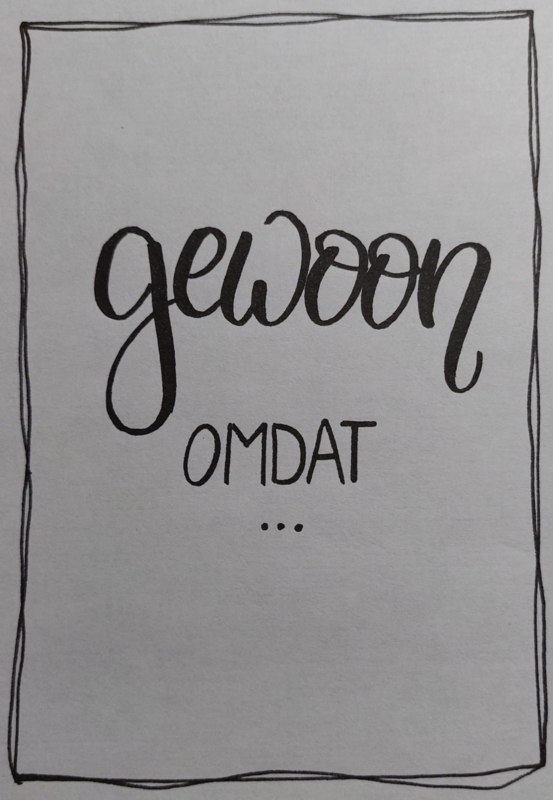 gewoon
OMDAT
...